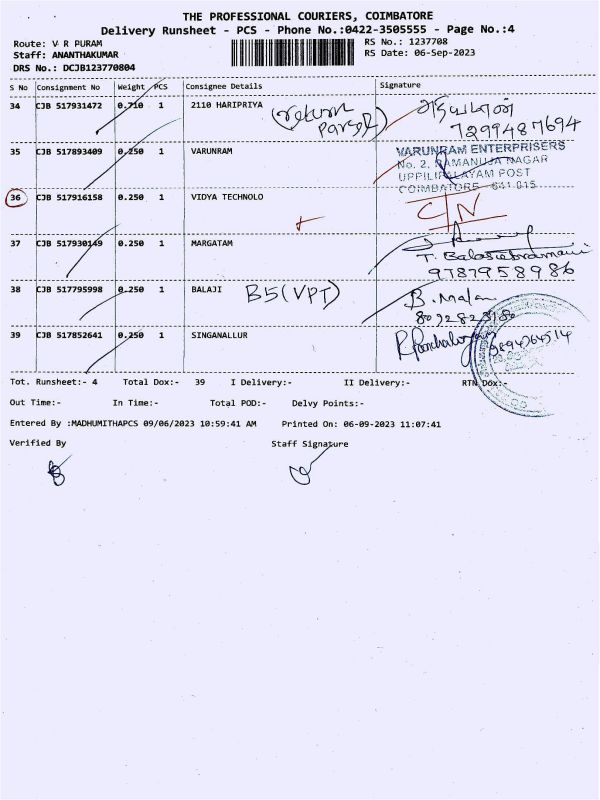 THE PROFESSIONAL COURIERS, COIMBATORE
Delivery Runsheet - PCS - Phone No.:0422-3505555 - Page No.:4
Route: V R PURAM
RS No.: 1237708
Staff: ANANTHAKUMAR
RS Date: 06-Sep-2023
DRS No.: DCJB123770804
S No Consignment No Weight PCS Consignee Details Signature
34 CJB 517931472 0.710 1 2110 HARIPRIYA (return parcel)
7299487694
35 CJB 517893409 0.250 1 VARUNRAM
VARUNRAM ENTERPRISERS
No. 2, RAMANUJA NAGAR
UPPILIPALAYAM POST
COIMBATORE - 641 015
36 CJB 517916158 0.250 1 VIDYA TECHNOLO C/N
37 CJB 517930149 0.250 1 MARGATAM
T. Balasubramani
9787958986
38 CJB 517795998 0.250 1 BALAJI B5(VPT)
39 CJB 517852641 0.250 1 SINGANALLUR
Tot. Runsheet:- 4 Total Dox:- 39 I Delivery:- II Delivery:- RTN Dox:-
Out Time:- In Time:- Total POD:- Delvy Points:-
Entered By :MADHUMITHAPCS 09/06/2023 10:59:41 AM Printed On: 06-09-2023 11:07:41
Verified By Staff Signature